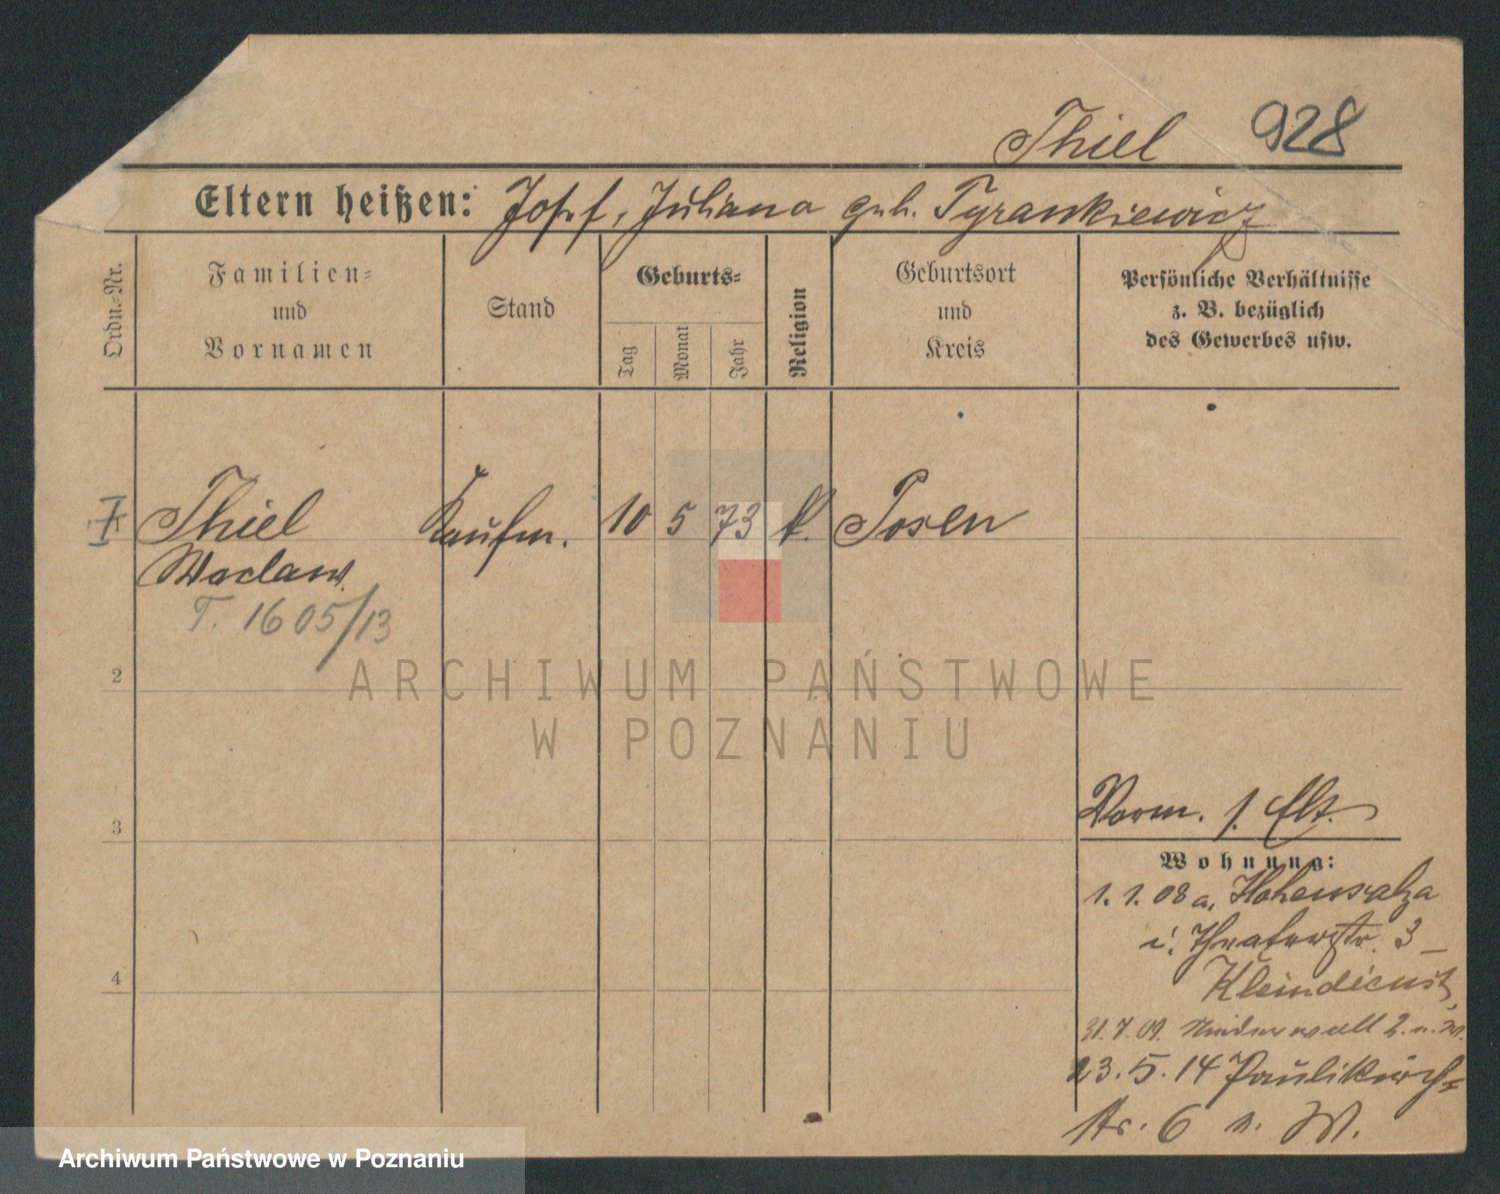 Thiel 928
Eltern heißen: Josef, Juliana geb. Tyrankiewicz
Ordn.-Nr.
Familien-
und
Vornamen
Stand
Geburts-
Tag
Monat
Jahr
Religion
Geburtsort
und
Kreis
Persönliche Verhältnisse
z. B. bezüglich
des Gewerbes usw.
I Thiel Kaufm. 10 5 73 k. Posen
Waclaw
T. 1605/13
2
ARCHIWUM PAŃSTWOWE
W POZNANIU
3
4
Vorm. s. Elt.
Wohnung:
1. 1. 08 a. Hohensalza
i. Theaterstr. 3
Kleindienst,
31.7.09. Niederwall 2. n. W.
23.5.14 Paulikirch-
str. 6 n. W.
Archiwum Państwowe w Poznaniu